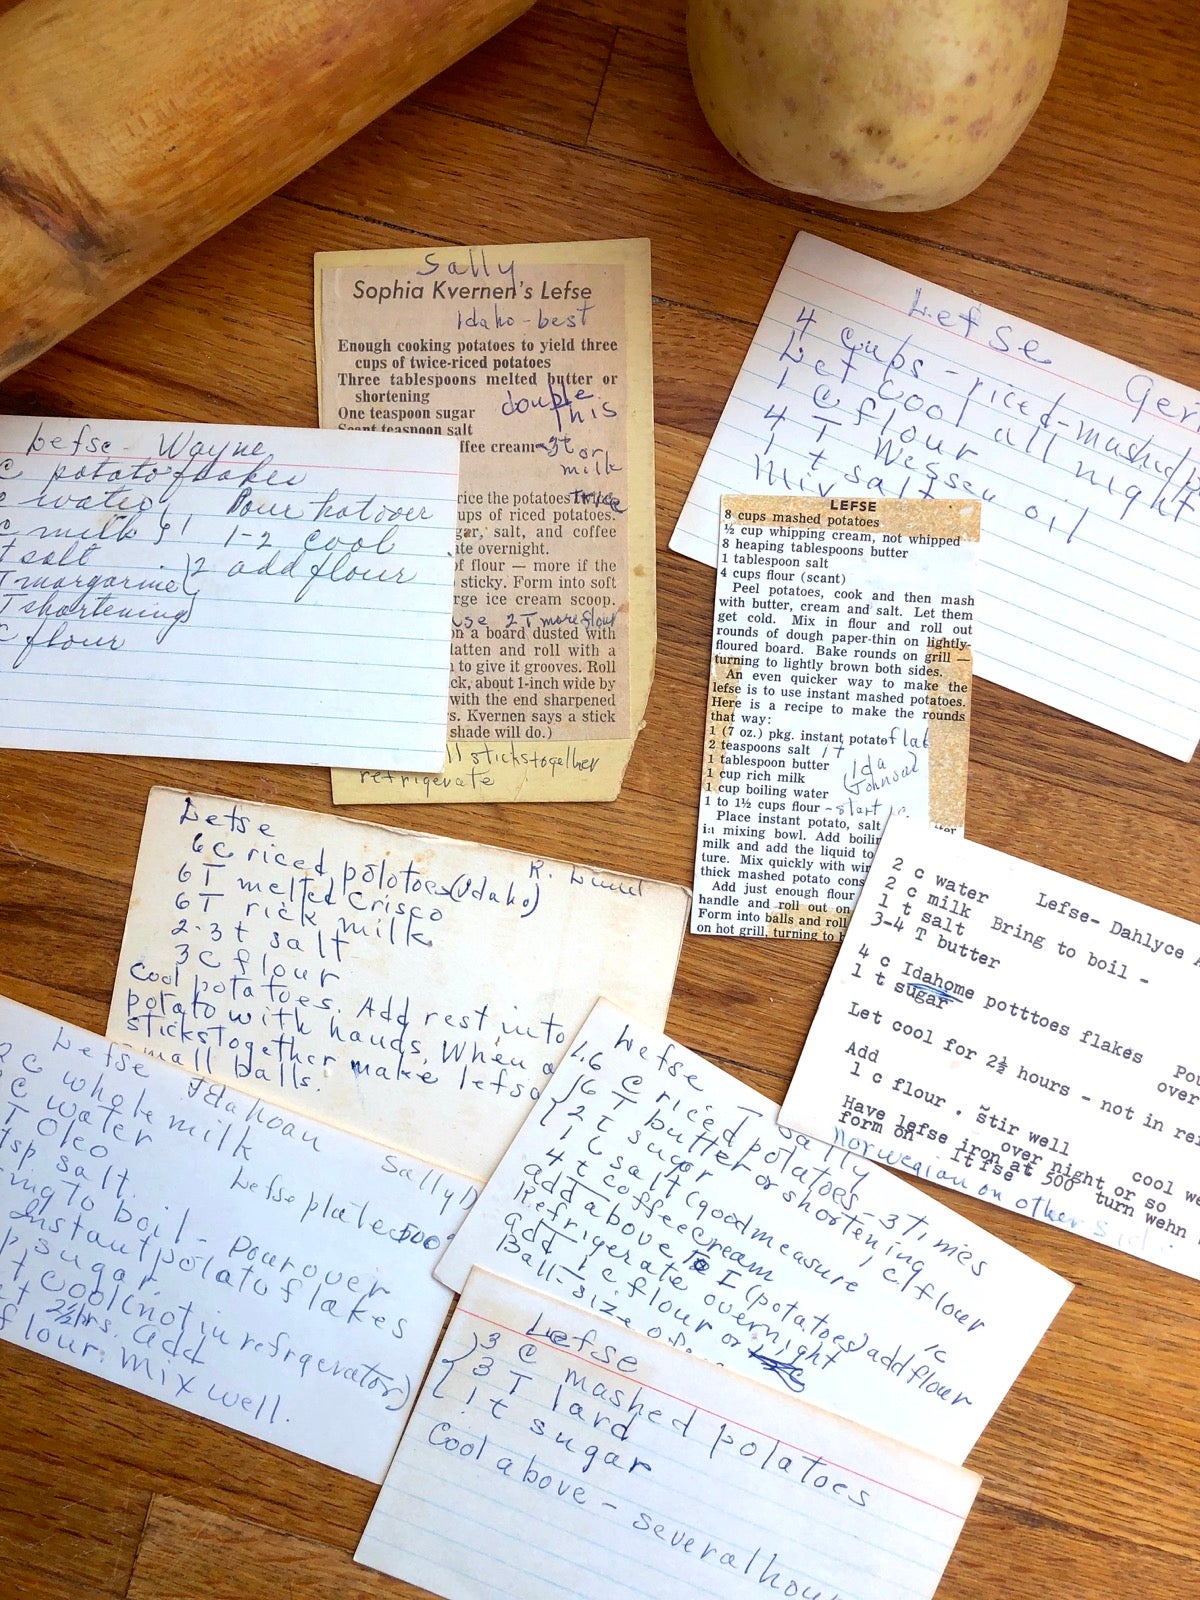 Sally
Sophia Kvernen's Lefse
Idaho - best
Enough cooking potatoes to yield three
cups of twice-riced potatoes
Three tablespoons melted butter or
shortening
One teaspoon sugar
double
this
Scant teaspoon salt
ffee cream - 3t or
milk
rice the potatoes twice
ups of riced potatoes.
gar, salt, and coffee
ate overnight.
of flour — more if the
sticky. Form into soft
rge ice cream scoop.
use 2T more flour
on a board dusted with
latten and roll with a
to give it grooves. Roll
ck, about 1-inch wide by
with the end sharpened
s. Kvernen says a stick
shade will do.)
ll stickstogether
refrigerate
Lefse
4 cups - riced-mashed
Let Cool all night
1 C flour
4 T Wessen oil
1 t salt
Mix
Lefse - Wayne
C potato flakes
water
Pour hot over
c milk
1-2 cool
t salt
2 add flour
T margarine
T shortening
C flour
LEFSE
8 cups mashed potatoes
½ cup whipping cream, not whipped
8 heaping tablespoons butter
1 tablespoon salt
4 cups flour (scant)
Peel potatoes, cook and then mash
with butter, cream and salt. Let them
get cold. Mix in flour and roll out
rounds of dough paper-thin on lightly-
floured board. Bake rounds on grill —
turning to lightly brown both sides.
An even quicker way to make the
lefse is to use instant mashed potatoes.
Here is a recipe to make the rounds
that way:
1 (7 oz.) pkg. instant potato flak
2 teaspoons salt 1 t
1 tablespoon butter
Ida
Johnson
1 cup rich milk
1 cup boiling water
1 to 1½ cups flour - start
Place instant potato, salt
tter
in mixing bowl. Add boilin
milk and add the liquid to
ture. Mix quickly with
thick mashed potato cons
Add just enough flour
handle and roll out on
Form into balls and roll
on hot grill, turning to b
Lefse
R. Lund
6 C riced potatoes (Idaho)
6 T melted Crisco
6 T rich milk
2-3 t salt
3 C flour
Cool potatoes. Add rest into
potato with hands. When
stickstogether make lefse
small balls.
2 c water
2 c milk Bring to boil -
1 t salt
3-4 T butter
Lefse- Dahlyce A
4 c Idahome potttoes flakes
Pou
over
1 t sugar
Let cool for 2½ hours - not in re
Add
1 c flour . stir well
cool we
Have lefse iron at 500 turn wehn
over night or so
form on
norwegian on other
Lefse Idahoan
Sally D
2 C whole milk
C water
T Oleo
Lefse plate 500°
tsp salt.
ing to boil - Pour over
Instant potato flakes
sugar.
t cool (not in refrgerator)
2½ hrs. Add
flour. Mix well.
Lefse
Sally
6 C riced potatoes - 3 Times
6 T butter or shortening
2 t sugar
1 t salt (good measure
4 t coffee cream
1 c flour
add above To I (potatoes) add flour
Refrigerate overnight
1c
add 1 c flour or
Ball-size of
Lefse
3 C mashed potatoes
3 T lard
1 t sugar
Cool above - several hou